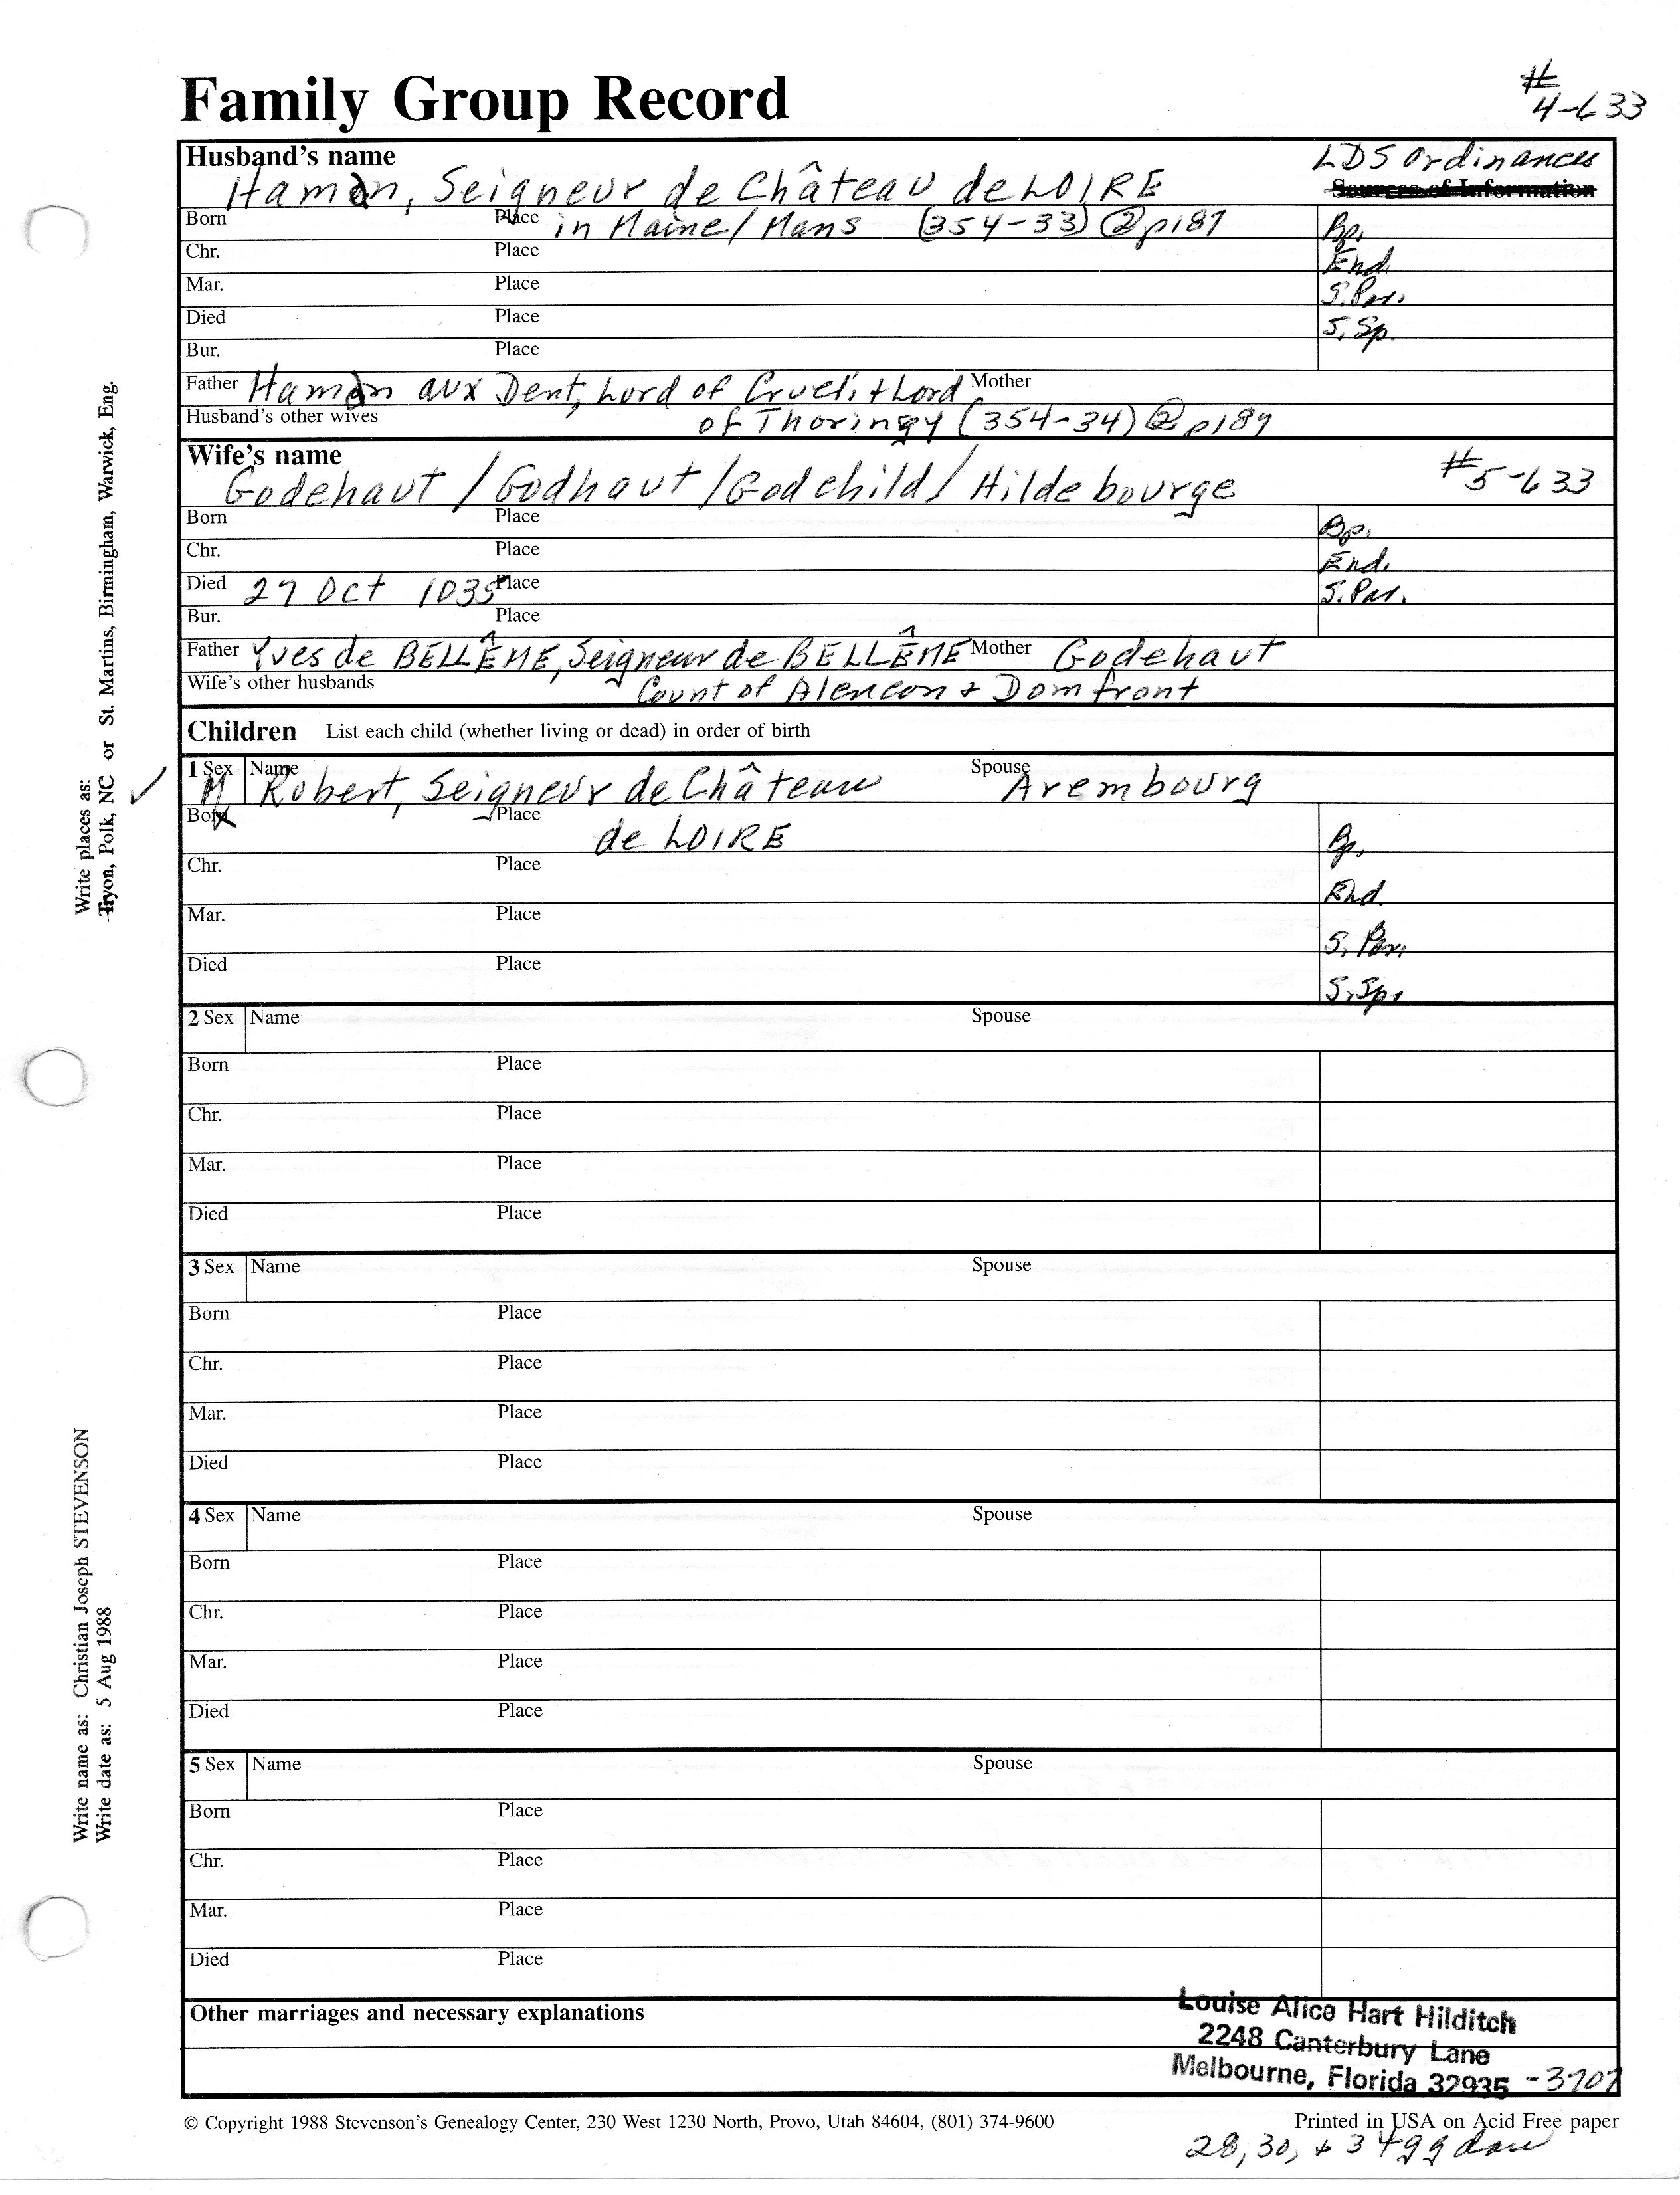 Family Group Record
#
4-633
Husband's name
LDS Ordinances
Hamon, Seigneur de Château de LOIRE
Sources of Information
Born Place in Maine/Mans (354-33) @ p187 Bp.
Chr. Place End.
Mar. Place S. Par.
Died Place S. Sp.
Bur. Place
Father Hamon aux Dent, Lord of Crueli + Lord Mother
Husband's other wives of Thoringy (354-34) @ p189
Wife's name
Godehaut / Godhaut / Godchild / Hildebourge #5-633
Born Place Bp.
Chr. Place End.
Died 27 Oct 1035 Place S. Par.
Bur. Place
Father Yves de BELLÊME, Seigneur de BELLÊME Mother Godehaut
Wife's other husbands Count of Alencon + Domfront
Children List each child (whether living or dead) in order of birth
1 Sex Name Spouse
M Robert, Seigneur de Château Arembourg
Born Place
de LOIRE Bp.
Chr. Place
End.
Mar. Place
S. Par.
Died Place
S. Sp.
2 Sex Name Spouse
Born Place
Chr. Place
Mar. Place
Died Place
3 Sex Name Spouse
Born Place
Chr. Place
Mar. Place
Died Place
4 Sex Name Spouse
Born Place
Chr. Place
Mar. Place
Died Place
5 Sex Name Spouse
Born Place
Chr. Place
Mar. Place
Died Place
Other marriages and necessary explanations
Louise Alice Hart Hilditch
2248 Canterbury Lane
Melbourne, Florida 32935 -3707
© Copyright 1988 Stevenson's Genealogy Center, 230 West 1230 North, Provo, Utah 84604, (801) 374-9600 Printed in USA on Acid Free paper
28, 30, + 34 gg dau
Write places as:
Tryon, Polk, NC or St. Martins, Birmingham, Warwick, Eng.
Write name as: Christian Joseph STEVENSON
Write date as: 5 Aug 1988